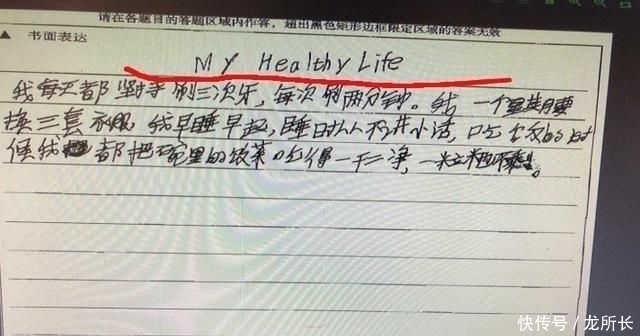 请在各题目的答题区域内作答,超出黑色矩形边框限定区域的答案无效
▲ 书面表达
My Healthy Life
我每天都坚持刷三次牙,每次刷两分钟。 一个星期
换三套衣服。我早睡早起,睡时从不讲小话,吃饭的时
候我都把碗里的饭菜吃得一干二净,一粒不剩。
快传号/龙所长